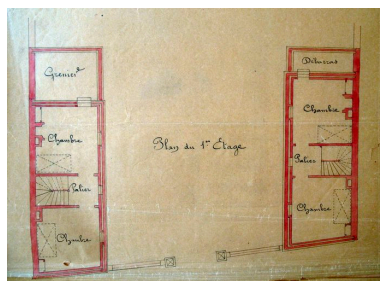 Grenier
Chambre
Palier
Chambre
Plan du 1er Étage
Débarras
Chambre
Palier
Chambre